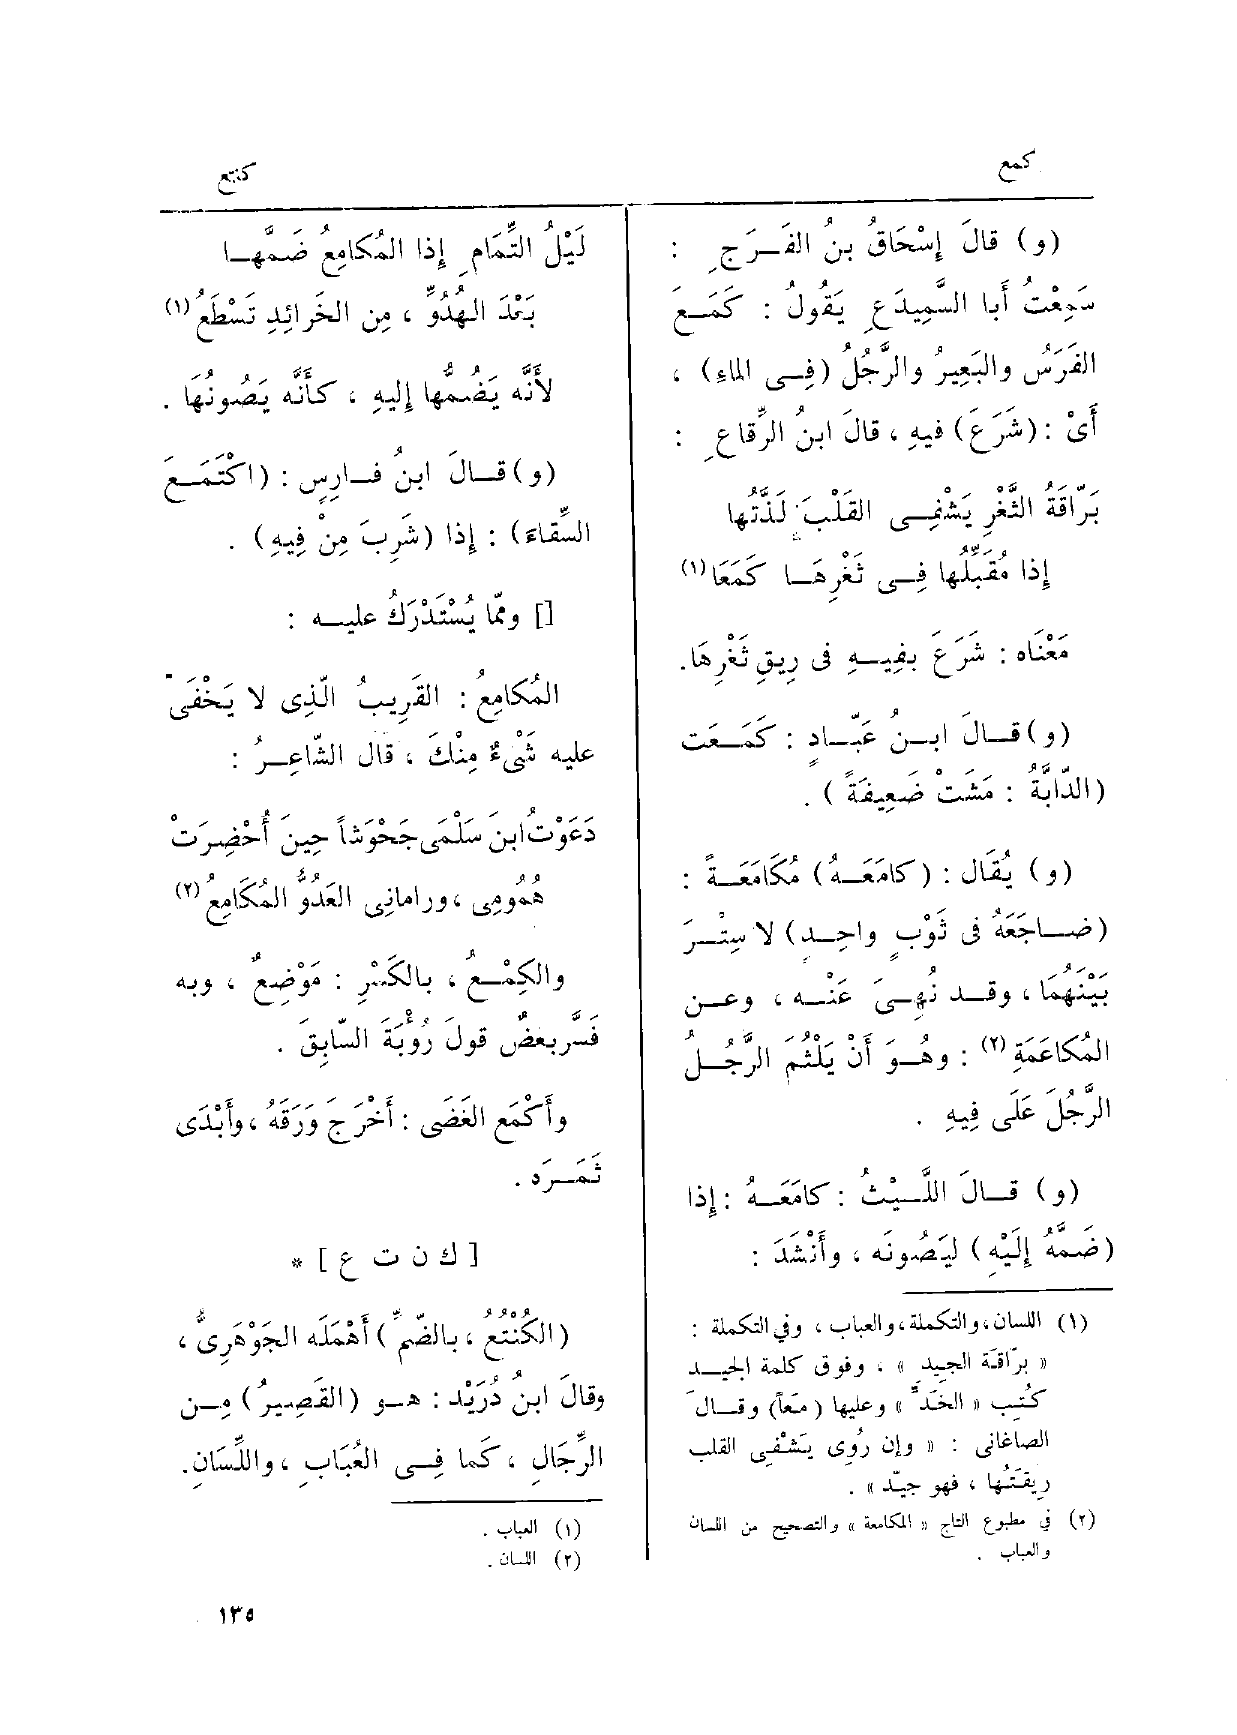 كمع
كنتع
(و) قالَ إِسْحَاقُ بنُ الفَـرَجِ :
سَمِعْتُ أَبا السَّمِيدَعِ يَقُولُ : كَمَـعَ
الفَرَسُ والبَعِيرُ والرَّجُلُ (فِـى الماءِ) ،
أَىْ : (شَرَعَ) فيهِ ، قالَ ابنُ الرِّقاعِ :
بَرّاقَةُ الثَّغْرِ يَشْفِـى القَلْبَ لَذَّتُها
إِذا مُقَبِّلُها فِـى ثَغْرِهَـا كَمَعَا(١)
مَعْنَاه : شَرَعَ بفِيـهِ فى رِيقِ ثَغْرِهَا.
(و) قـالَ ابـنُ عَبّـادٍ : كَمَـعَت
(الدّابَّةُ : مَشَتْ ضَعِيفَةً) .
(و) يُقَال : (كامَعَـهُ) مُكَامَعَـةً :
(ضـاجَعَهُ فى ثَوْبٍ واحِـدٍ) لا سِتْـرَ
بَيْنَهُمَا ، وقـد نُهِـىَ عَنْـه ، وعـن
المُكاعَمَةِ(٢) : وهُـوَ أَنْ يَلْثُمَ الرَّجُـلُ
الرَّجُلَ عَلَى فِيهِ .
(و) قـالَ اللَّـيْثُ : كامَعَـهُ : إِذا
(ضَمَّهُ إِلَيْهِ) لِيَصُونَه ، وأَنْشَدَ :
(١) اللسان، والتكملة، والعباب ، وفي التكملة :
« برّاقة الجيد » ، وفوق كلمة الجيـد
كُتِب « الخَدّ » وعليها (مَعاً) وقـال
الصاغانى : « وإن رُوى يَشْفِى القلب
رِيقَتُها ، فهو جيّد » .
(٢) في مطبوع التاج « المكامعة » والتصحيح من اللسان
والعباب .
لَيْلُ التِّمَامِ إِذا المُكامِعُ ضَمَّهـا
بَعْدَ الهُدُوِّ ، مِن الخَرائِدِ تَسْطَعُ(١)
لأَنَّه يَضُمُّها إِليهِ ، كأَنَّه يَصُونُها .
(و) قـالَ ابنُ فـارِسٍ : (اكْتَمَـعَ
السِّقاءَ) : إِذا (شَرِبَ مِنْ فِيهِ) .
[] وممّا يُسْتَدْرَكُ عليـه :
المُكامِعُ : القَرِيبُ الّذِى لا يَخْفَى
عليه شَىْءٌ مِنْكَ ، قال الشّاعِـرُ :
دَعَوْتُ ابنَ سَلْمَى جَحْوَشاً حِينَ أُحْضِرَتْ
هُمُومِى ، ورامانِى العَدُوُّ المُكامِعُ(٢)
والكِمْـعُ ، بالكَسْرِ : مَوْضِعٌ ، وبه
فَسَّر بعضٌ قولَ رُؤْبَةَ السّابِقَ .
وأَكْمَع الغَضَى : أَخْرَجَ وَرَقَهُ ، وأَبْدَى
ثَمَـرَه .
[ ك ن ت ع ] *
(الكُنْتُع ، بالضّمِّ) أَهْمَلَه الجَوْهَرِىُّ ،
وقالَ ابنُ دُرَيْد : هـو (القَصِيرُ) مِـن
الرِّجَالِ ، كَما فِـى العُبَابِ ، واللِّسَانِ.
(١) العباب .
(٢) اللسان .
١٣٥